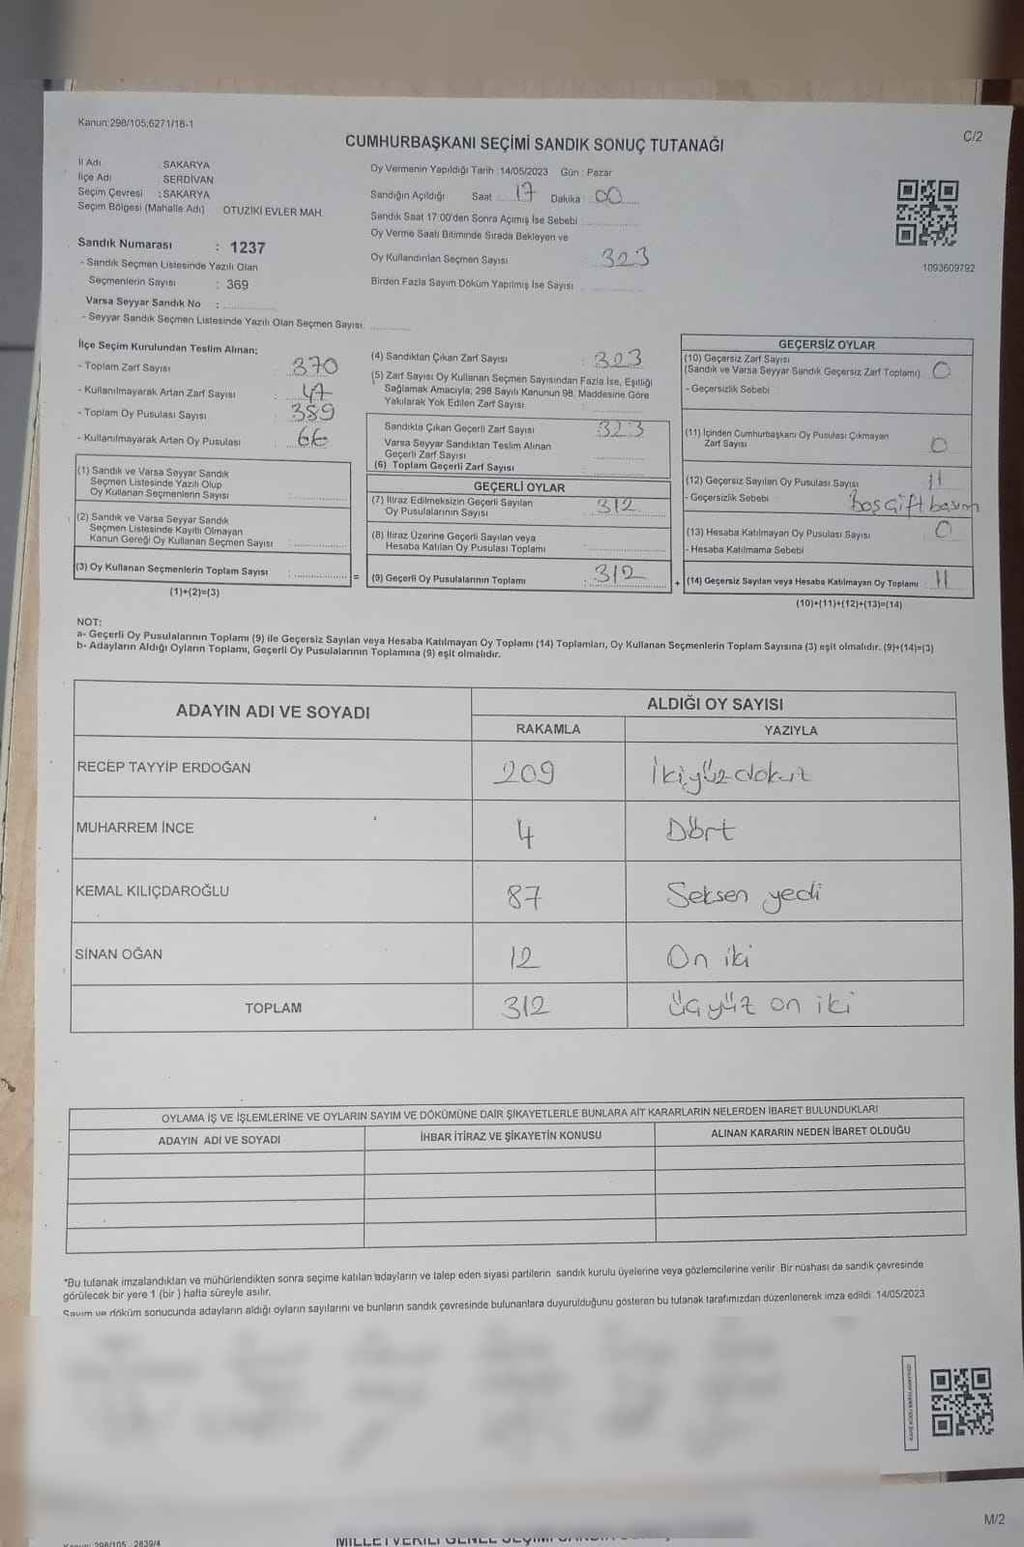 Kanun:298/105;6271/16-1
C/2
CUMHURBAŞKANI SEÇİMİ SANDIK SONUÇ TUTANAĞI
İl Adı SAKARYA
İlçe Adı SERDİVAN
Seçim Çevresi : SAKARYA
Seçim Bölgesi (Mahalle Adı) OTUZİKİ EVLER MAH.
Sandık Numarası : 1237
- Sandık Seçmen Listesinde Yazılı Olan
Seçmenlerin Sayısı : 369
Varsa Seyyar Sandık No :
- Seyyar Sandık Seçmen Listesinde Yazılı Olan Seçmen Sayısı
Oy Vermenin Yapıldığı Tarih : 14/05/2023 Gün : Pazar
Sandığın Açıldığı Saat 17 Dakika 00
Sandık Saat 17:00'den Sonra Açımış İse Sebebi
Oy Verme Saati Bitiminde Sırada Bekleyen ve
Oy Kullandırılan Seçmen Sayısı 323
Birden Fazla Sayım Döküm Yapılmış İse Sayısı
1093609792
İlçe Seçim Kurulundan Teslim Alınan;
- Toplam Zarf Sayısı : 370
- Kullanılmayarak Artan Zarf Sayısı : 47
- Toplam Oy Pusulası Sayısı : 389
- Kullanılmayarak Artan Oy Pusulası : 66
(1) Sandık ve Varsa Seyyar Sandık
Seçmen Listesinde Yazılı Olup
Oy Kullanan Seçmenlerin Sayısı
(2) Sandık ve Varsa Seyyar Sandık
Seçmen Listesinde Kayıtlı Olmayan
Kanun Gereği Oy Kullanan Seçmen Sayısı
(3) Oy Kullanan Seçmenlerin Toplam Sayısı : =
(1)+(2)=(3)
(4) Sandıktan Çıkan Zarf Sayısı : 323
(5) Zarf Sayısı Oy Kullanan Seçmen Sayısından Fazla İse, Eşitliği
Sağlamak Amacıyla; 298 Sayılı Kanunun 98. Maddesine Göre
Yakılarak Yok Edilen Zarf Sayısı
Sandıkta Çıkan Geçerli Zarf Sayısı 323
Varsa Seyyar Sandıktan Teslim Alınan
Geçerli Zarf Sayısı
(6) Toplam Geçerli Zarf Sayısı
GEÇERLİ OYLAR
(7) İtiraz Edilmeksizin Geçerli Sayılan
Oy Pusulalarının Sayısı 312
(8) İtiraz Üzerine Geçerli Sayılan veya
Hesaba Katılan Oy Pusulası Toplamı
(9) Geçerli Oy Pusulalarının Toplamı : 312 +
GEÇERSİZ OYLAR
(10) Geçersiz Zarf Sayısı
(Sandık ve Varsa Seyyar Sandık Geçersiz Zarf Toplamı) 0
- Geçersizlik Sebebi
(11) İçinden Cumhurbaşkanı Oy Pusulası Çıkmayan
Zarf Sayısı 0
(12) Geçersiz Sayılan Oy Pusulası Sayısı 11
- Geçersizlik Sebebi boş çift basım
(13) Hesaba Katılmayan Oy Pusulası Sayısı 0
- Hesaba Katılmama Sebebi
(14) Geçersiz Sayılan veya Hesaba Katılmayan Oy Toplamı : 11
(10)+(11)+(12)+(13)=(14)
NOT:
a- Geçerli Oy Pusulalarının Toplamı (9) ile Geçersiz Sayılan veya Hesaba Katılmayan Oy Toplamı (14) Toplamları, Oy Kullanan Seçmenlerin Toplam Sayısına (3) eşit olmalıdır. (9)+(14)=(3)
b- Adayların Aldığı Oyların Toplamı, Geçerli Oy Pusulalarının Toplamına (9) eşit olmalıdır.
ADAYIN ADI VE SOYADI ALDIĞI OY SAYISI
RAKAMLA YAZIYLA
RECEP TAYYİP ERDOĞAN 209 İkiyüzdokuz
MUHARREM İNCE 4 Dört
KEMAL KILIÇDAROĞLU 87 Seksen yedi
SİNAN OĞAN 12 On iki
TOPLAM 312 üçyüz on iki
OYLAMA İŞ VE İŞLEMLERİNE VE OYLARIN SAYIM VE DÖKÜMÜNE DAİR ŞİKAYETLERLE BUNLARA AİT KARARLARIN NELERDEN İBARET BULUNDUKLARI
ADAYIN ADI VE SOYADI İHBAR İTİRAZ VE ŞİKAYETİN KONUSU ALINAN KARARIN NEDEN İBARET OLDUĞU
*Bu tutanak imzalandıktan ve mühürlendikten sonra seçime katılan adayların ve talep eden siyasi partilerin sandık kurulu üyelerine veya gözlemcilerine verilir. Bir nüshası da sandık çevresinde
görülecek bir yere 1 (bir ) hafta süreyle asılır.
Sayım ve döküm sonucunda adayların aldığı oyların sayılarını ve bunların sandık çevresinde bulunanlara duyurulduğunu gösteren bu tutanak tarafımızdan düzenlenerek imza edildi. 14/05/2023
M/2
MİLLETVEKİLİ GENEL SEÇİMİ